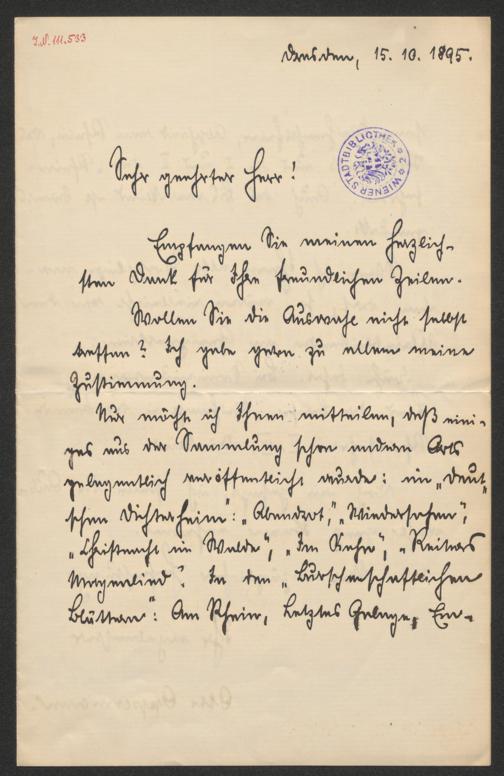 J.N. 111.533
Dresden, 15. 10. 1895.
WIENER STADTBIBLIOTHEK
Sehr geehrter Herr!
Empfangen Sie meinen herzlich-
sten Dank für Ihre freundlichen Zeilen.
Wollen Sie die Auswahl nicht selbst
treffen? Ich gebe gern zu allem meine
Zustimmung.
Nur möchte ich Ihnen mitteilen, daß eini-
ges aus der Sammlung schon andern Orts
gelegentlich veröffentlicht wurde: im „Deut-
schen Dichterheim“: „Abendrot“, „Wiedersehen“,
„Christnacht im Walde“, „Im Kahn“, „Reiters
Morgenlied“. In den „Burschenschaftlichen
Blättern“: Am Rhein, Letztes Gelage, Em-